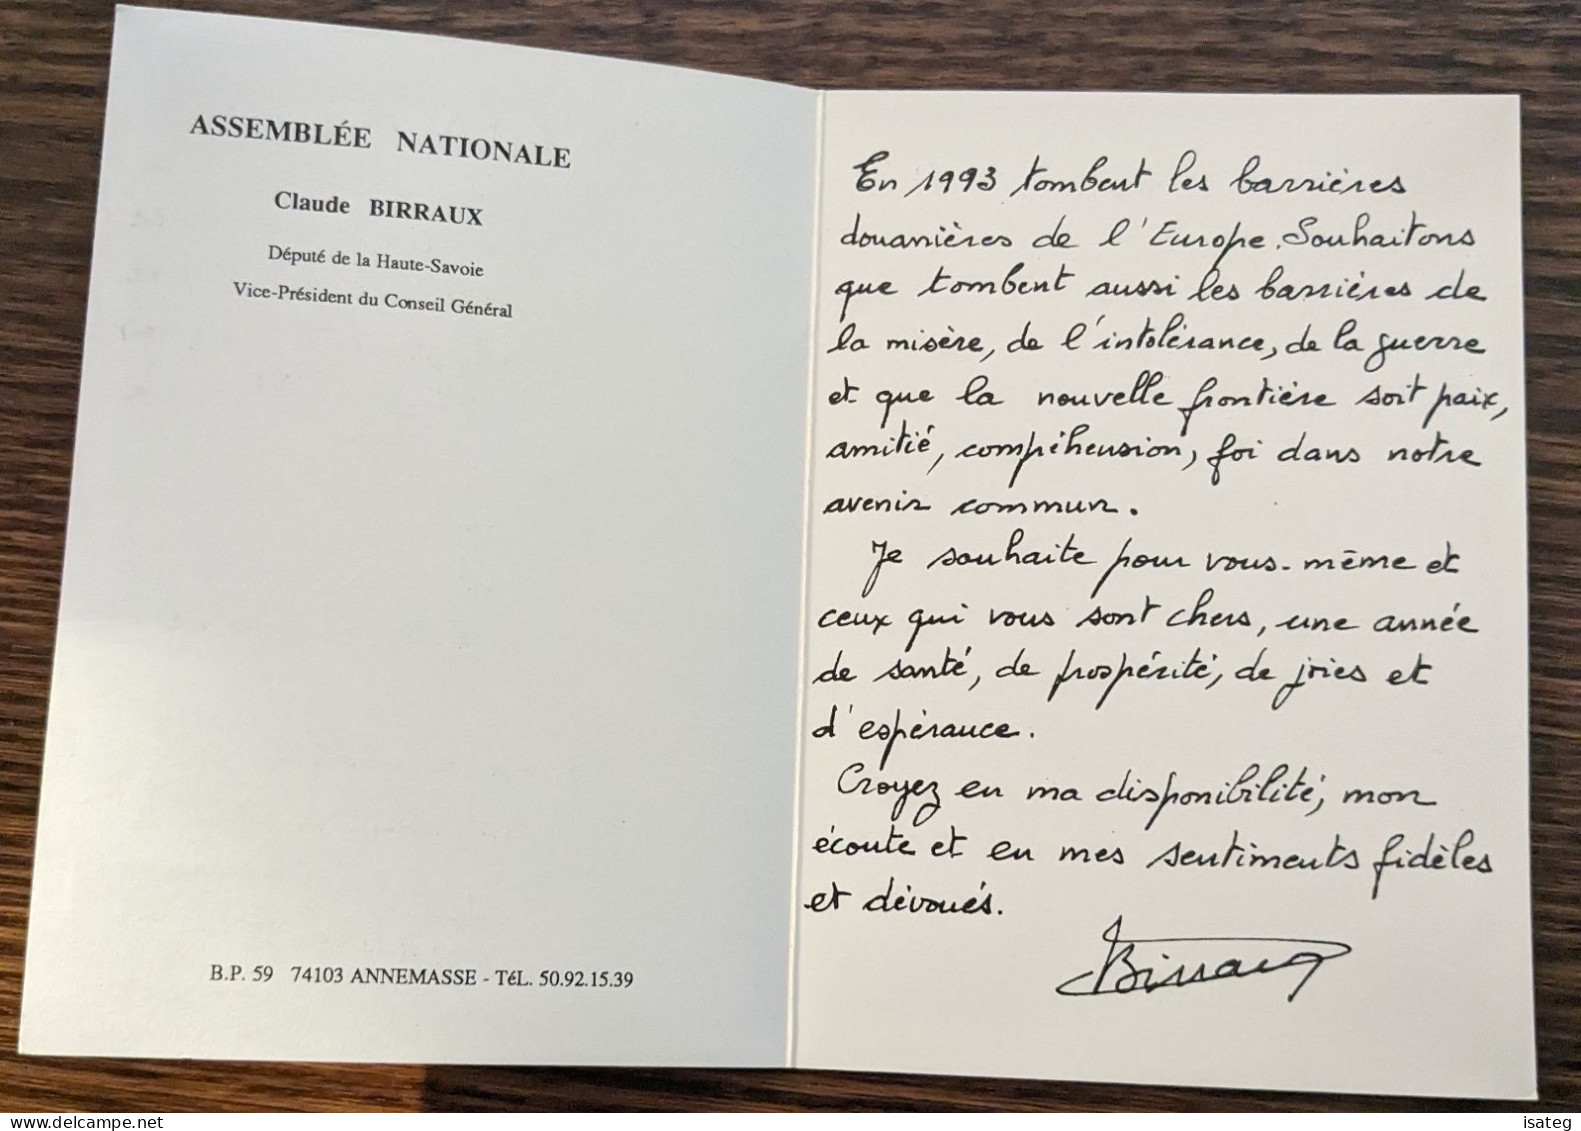 ASSEMBLÉE NATIONALE
Claude BIRRAUX
Député de la Haute-Savoie
Vice-Président du Conseil Général
B.P. 59 74103 ANNEMASSE - TéL. 50.92.15.39
En 1993 tombent les barrières
douanières de l'Europe. Souhaitons
que tombent aussi les barrières de
la misère, de l'intolérance, de la guerre
et que la nouvelle frontière soit paix,
amitié, compréhension, foi dans notre
avenir commun.
Je souhaite pour vous-même et
ceux qui vous sont chers, une année
de santé, de prospérité, de joies et
d'espérance.
Croyez en ma disponibilité, mon
écoute et en mes sentiments fidèles
et dévoués.
Birraux
delcampe.net
isateg